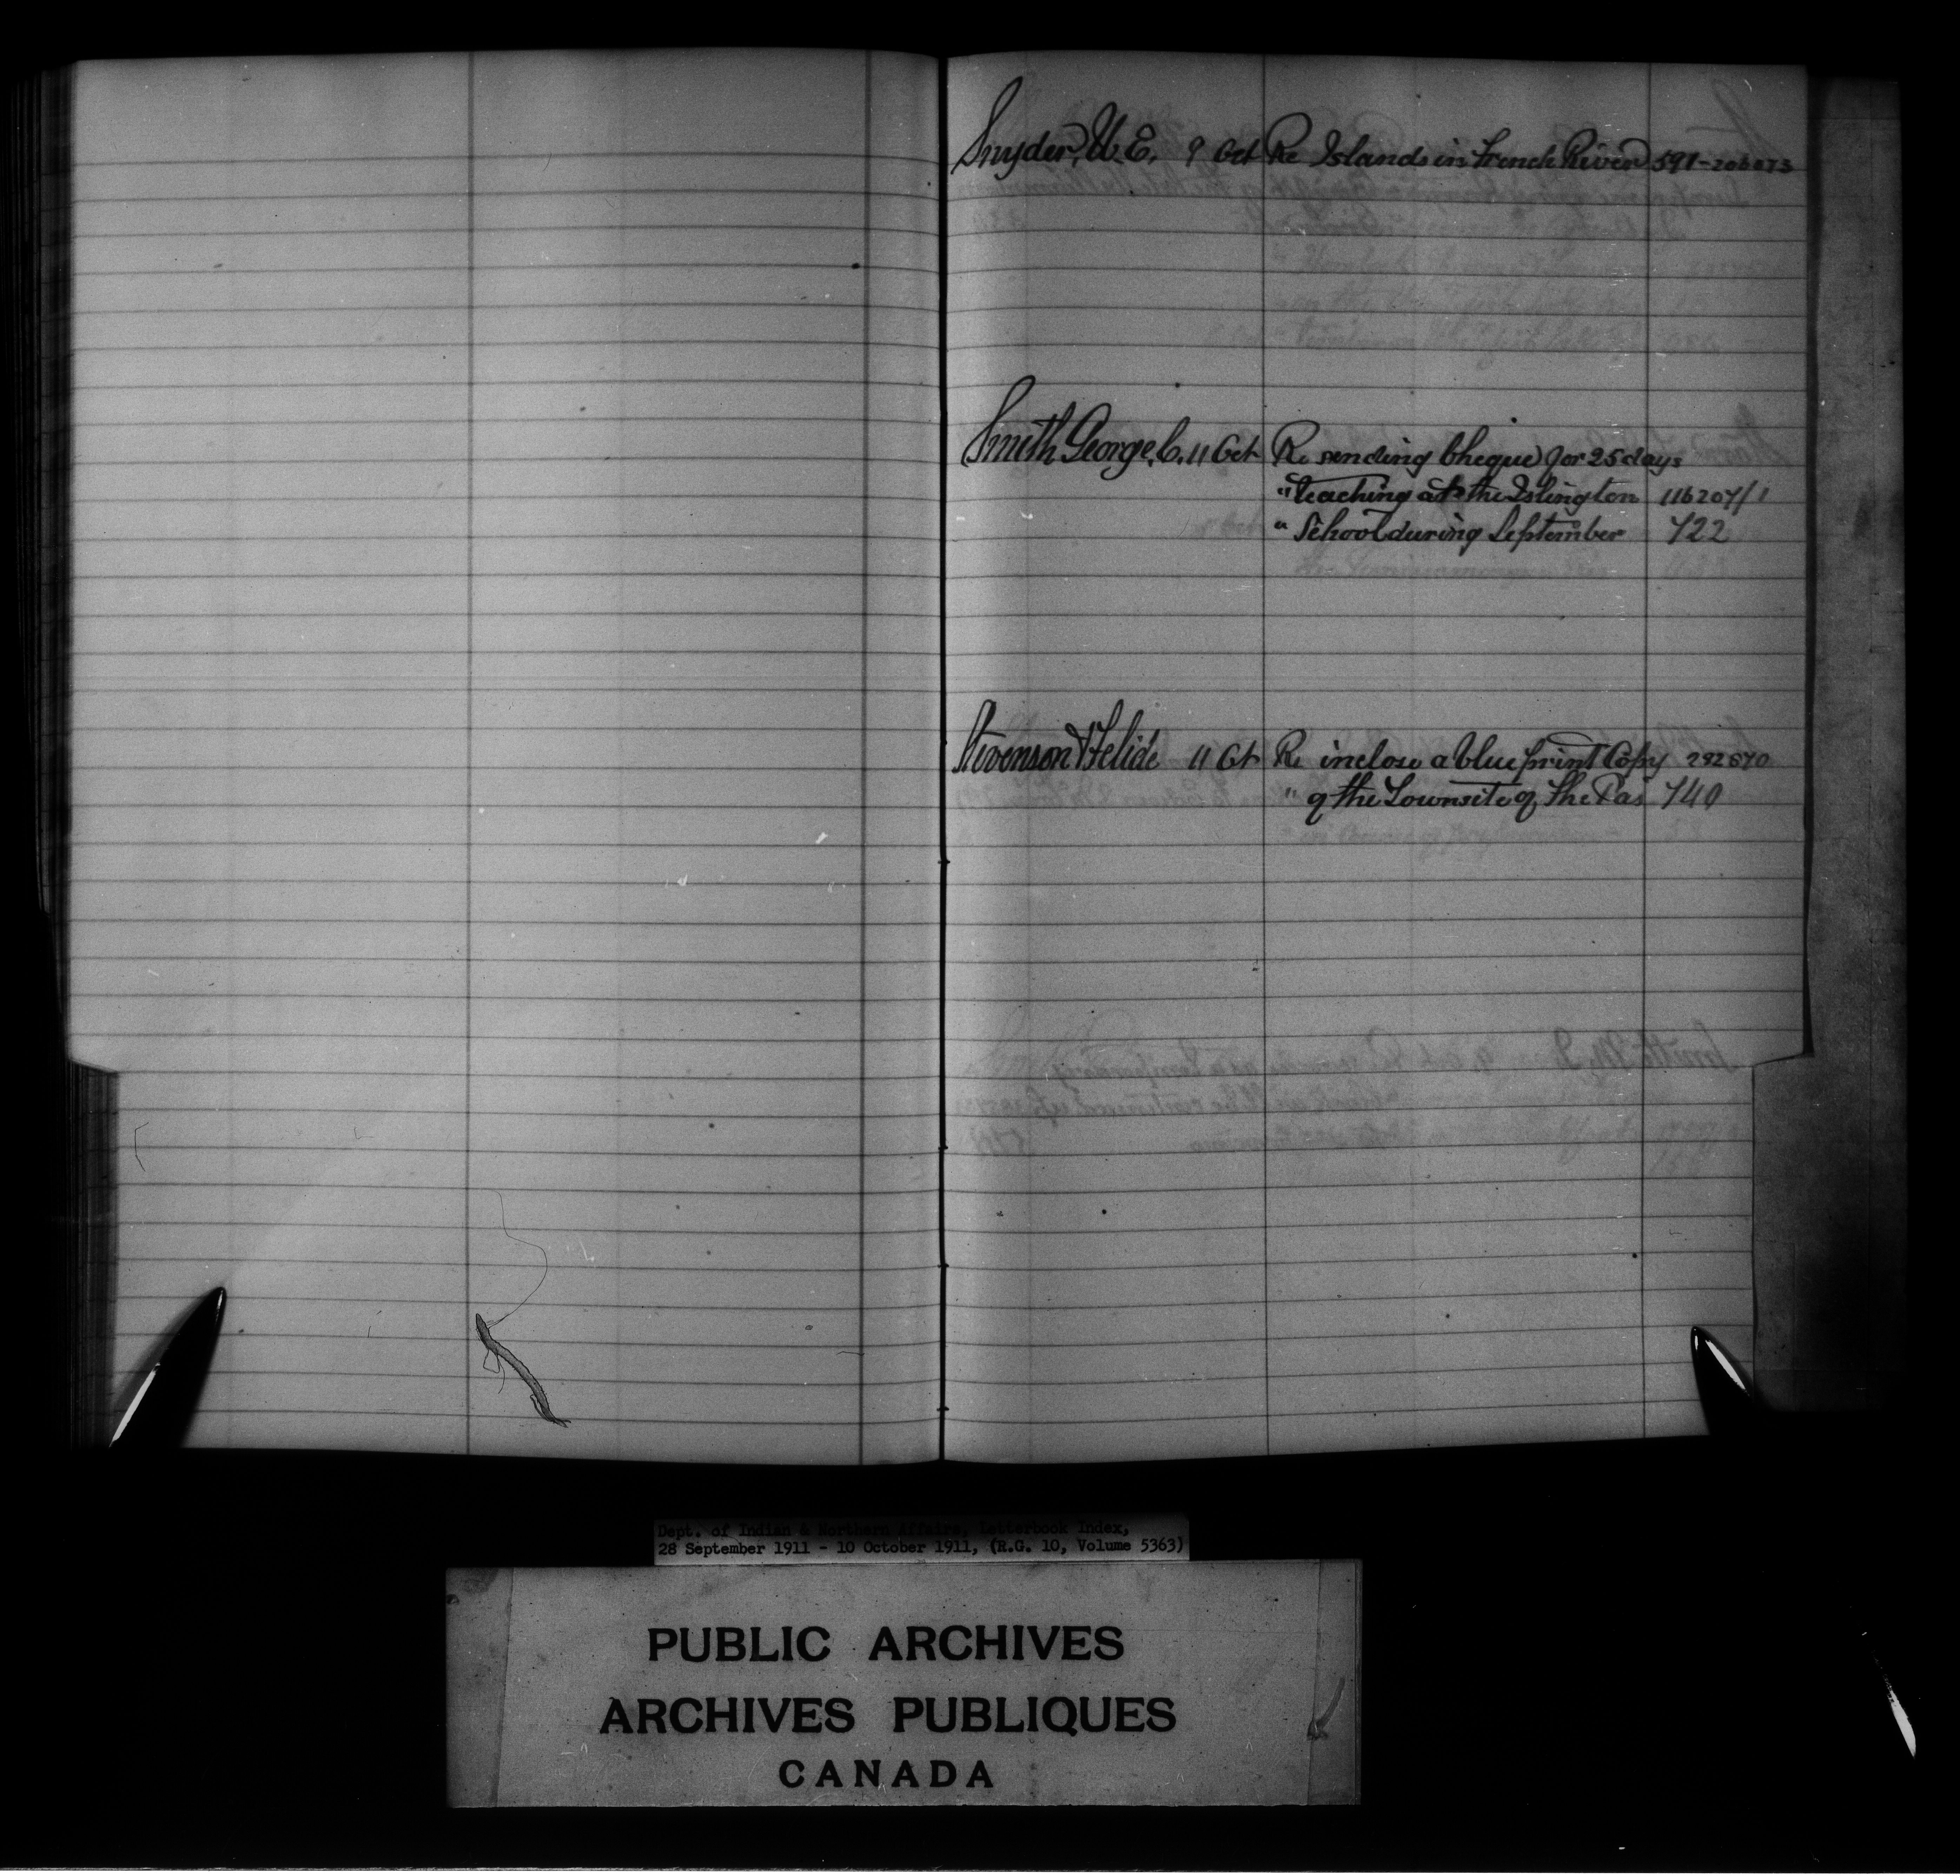 Snyder, W. E. 9 Oct Re Islands in French River 591-206073
Smith George, C. 11 Oct Re sending Cheque for 25 days
" teaching at the Islington 116207/1
" School during September 722
Stevenson 11 Oct Re inclose a blue print Copy
" of the Townsite of The Pas 740
Dept. of Indian & Northern Affairs, Letterbook Index,
28 September 1911 - 10 October 1911, (R.G. 10, Volume 5363)
PUBLIC ARCHIVES
ARCHIVES PUBLIQUES
CANADA